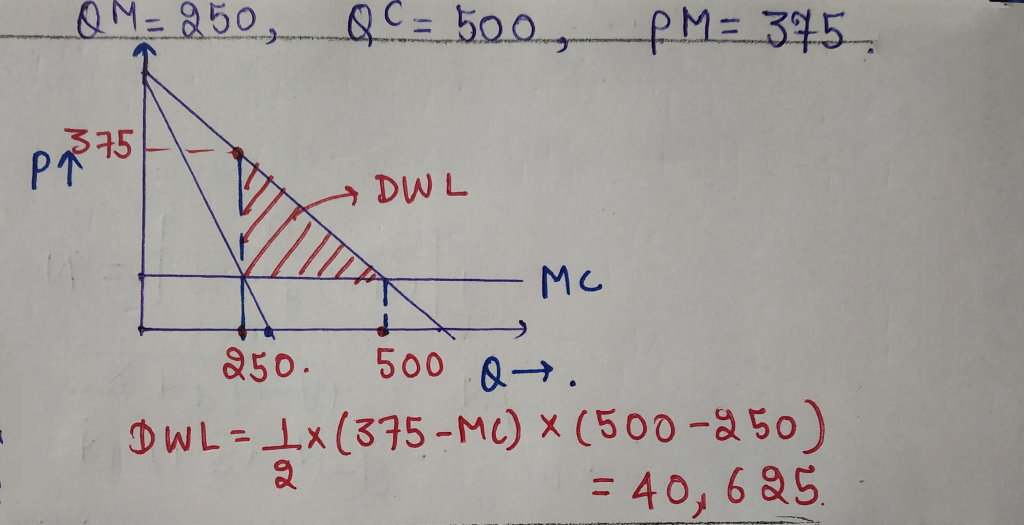 QM = 250, QC = 500, PM = 375.
375
P↑
DWL
MC
250. 500 Q → .
DWL = 1/2 × (375 - MC) × (500 - 250)
= 40,625.